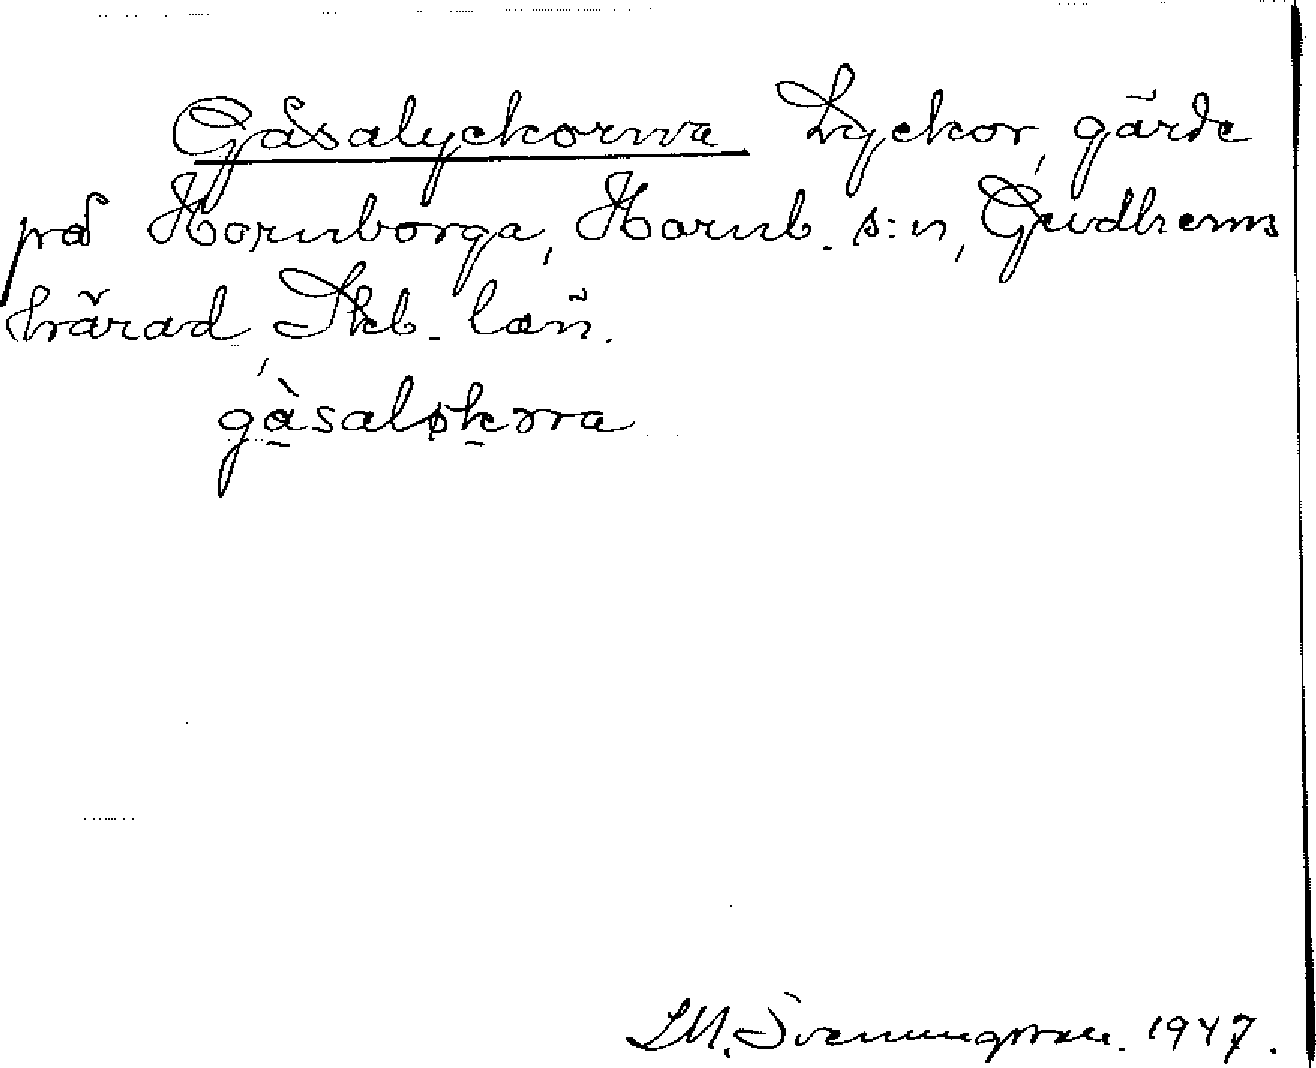 Gåsalyckorna Lyckor, gärde
på Hornborga, Hornb. s:n, Gudhems
härad, Skb. län.
gàsaløkɔrna
LM. Svenungsson. 1947.